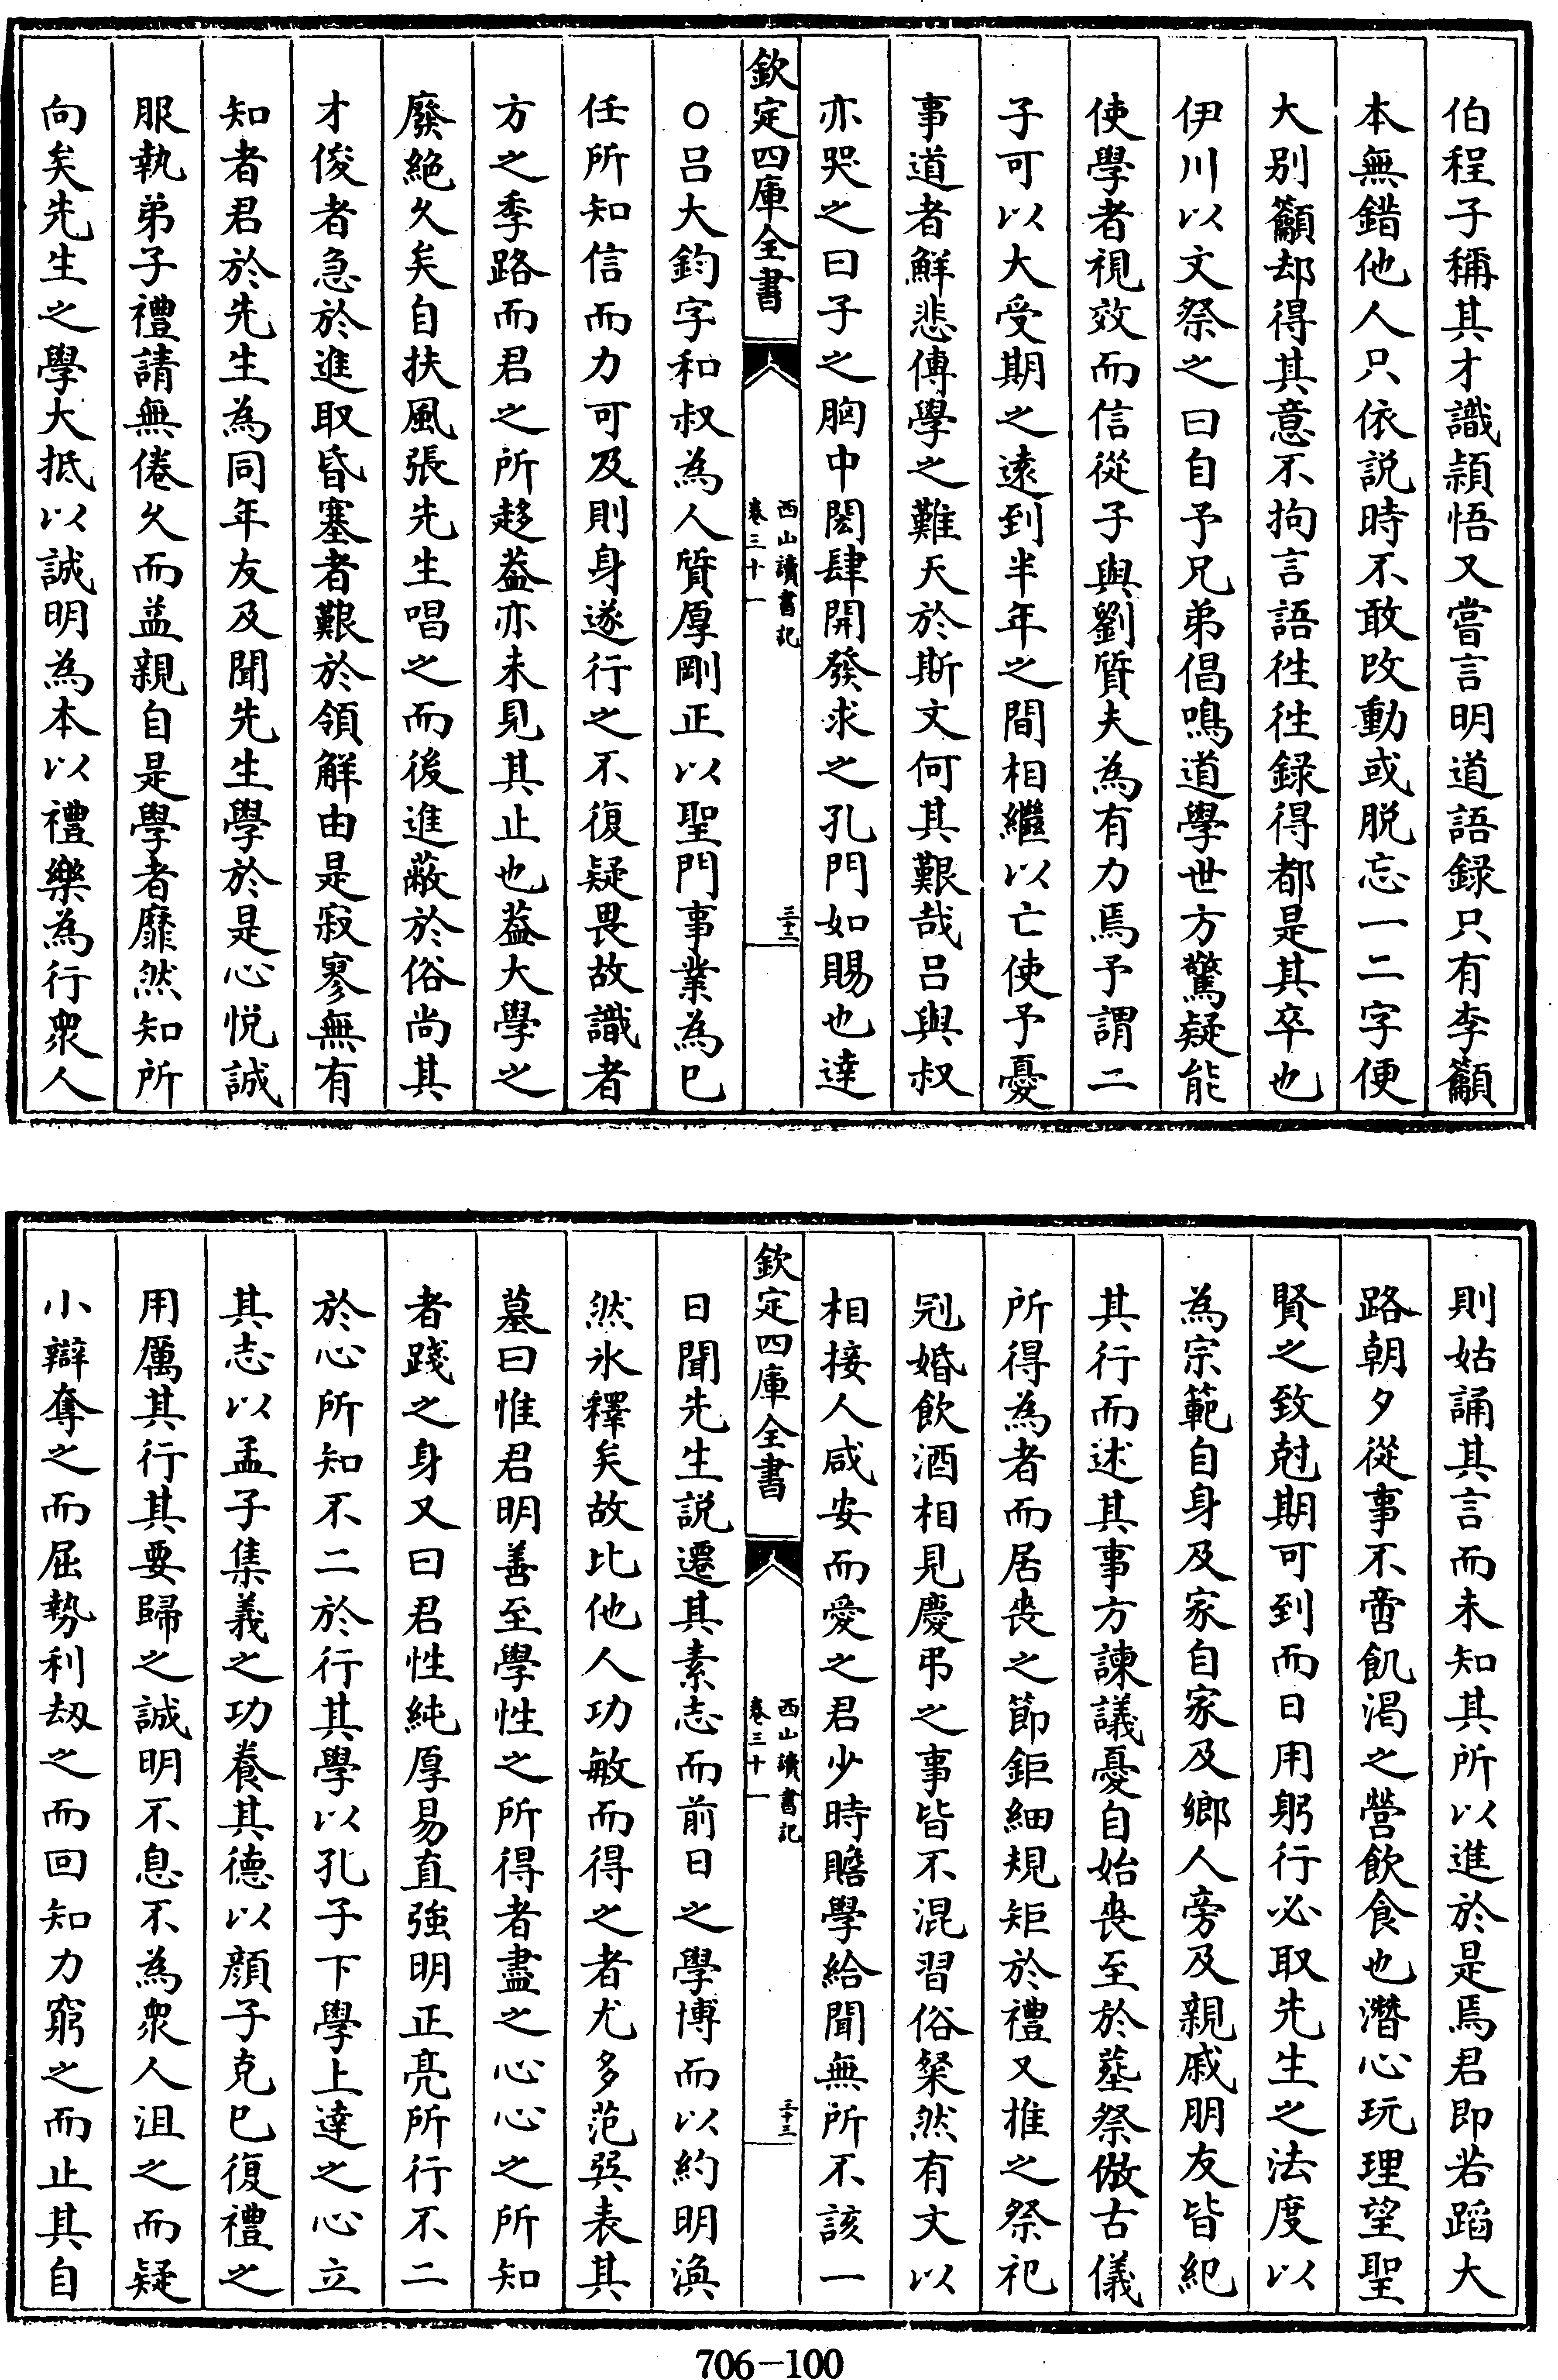 伯程子稱其才識頴悟又嘗言明道語録只有李籲
本無錯他人只依説時不敢改動或脱忘一二字便
大别籲却得其意不拘言語徃徃録得都是其卒也
伊川以文祭之曰自予兄弟倡鳴道學世方驚疑能
使學者視效而信從子與劉質夫為有力焉予謂二
子可以大受期之遠到半年之間相繼以亡使予憂
事道者鮮悲傳學之難天於斯文何其艱哉吕與叔
亦哭之曰子之胸中閎肆開發求之孔門如賜也達
欽定四庫全書
西山讀書記
卷三十一
三十二
○吕大鈞字和叔為人質厚剛正以聖門事業為已
任所知信而力可及則身遂行之不復疑畏故識者
方之季路而君之所趍葢亦未見其止也葢大學之
廢絶久矣自扶風張先生唱之而後進蔽於俗尚其
才俊者急於進取昏塞者艱於領解由是寂寥無有
知者君於先生為同年友及聞先生學於是心悦誠
服執弟子禮請無倦久而益親自是學者靡然知所
向矣先生之學大抵以誠明為本以禮樂為行衆人
則姑誦其言而未知其所以進於是焉君即若蹈大
路朝夕從事不啻飢渴之營飲食也潛心玩理望聖
賢之致尅期可到而日用躬行必取先生之法度以
為宗範自身及家自家及鄉人旁及親戚朋友皆紀
其行而述其事方諫議憂自始喪至於塟祭倣古儀
所得為者而居喪之節鉅細規矩於禮又推之祭祀
冠婚飲酒相見慶弔之事皆不混習俗粲然有文以
相接人咸安而愛之君少時贍學給聞無所不該一
欽定四庫全書
西山讀書記
卷三十一
三十三
日聞先生説遷其素志而前日之學博而以約明渙
然氷釋矣故比他人功敏而得之者尤多范巽表其
墓曰惟君明善至學性之所得者盡之心心之所知
者踐之身又曰君性純厚易直強明正亮所行不二
於心所知不二於行其學以孔子下學上達之心立
其志以孟子集義之功養其德以顔子克已復禮之
用厲其行其要歸之誠明不息不為衆人沮之而疑
小辯奪之而屈勢利刼之而回知力窮之而止其自
706-100